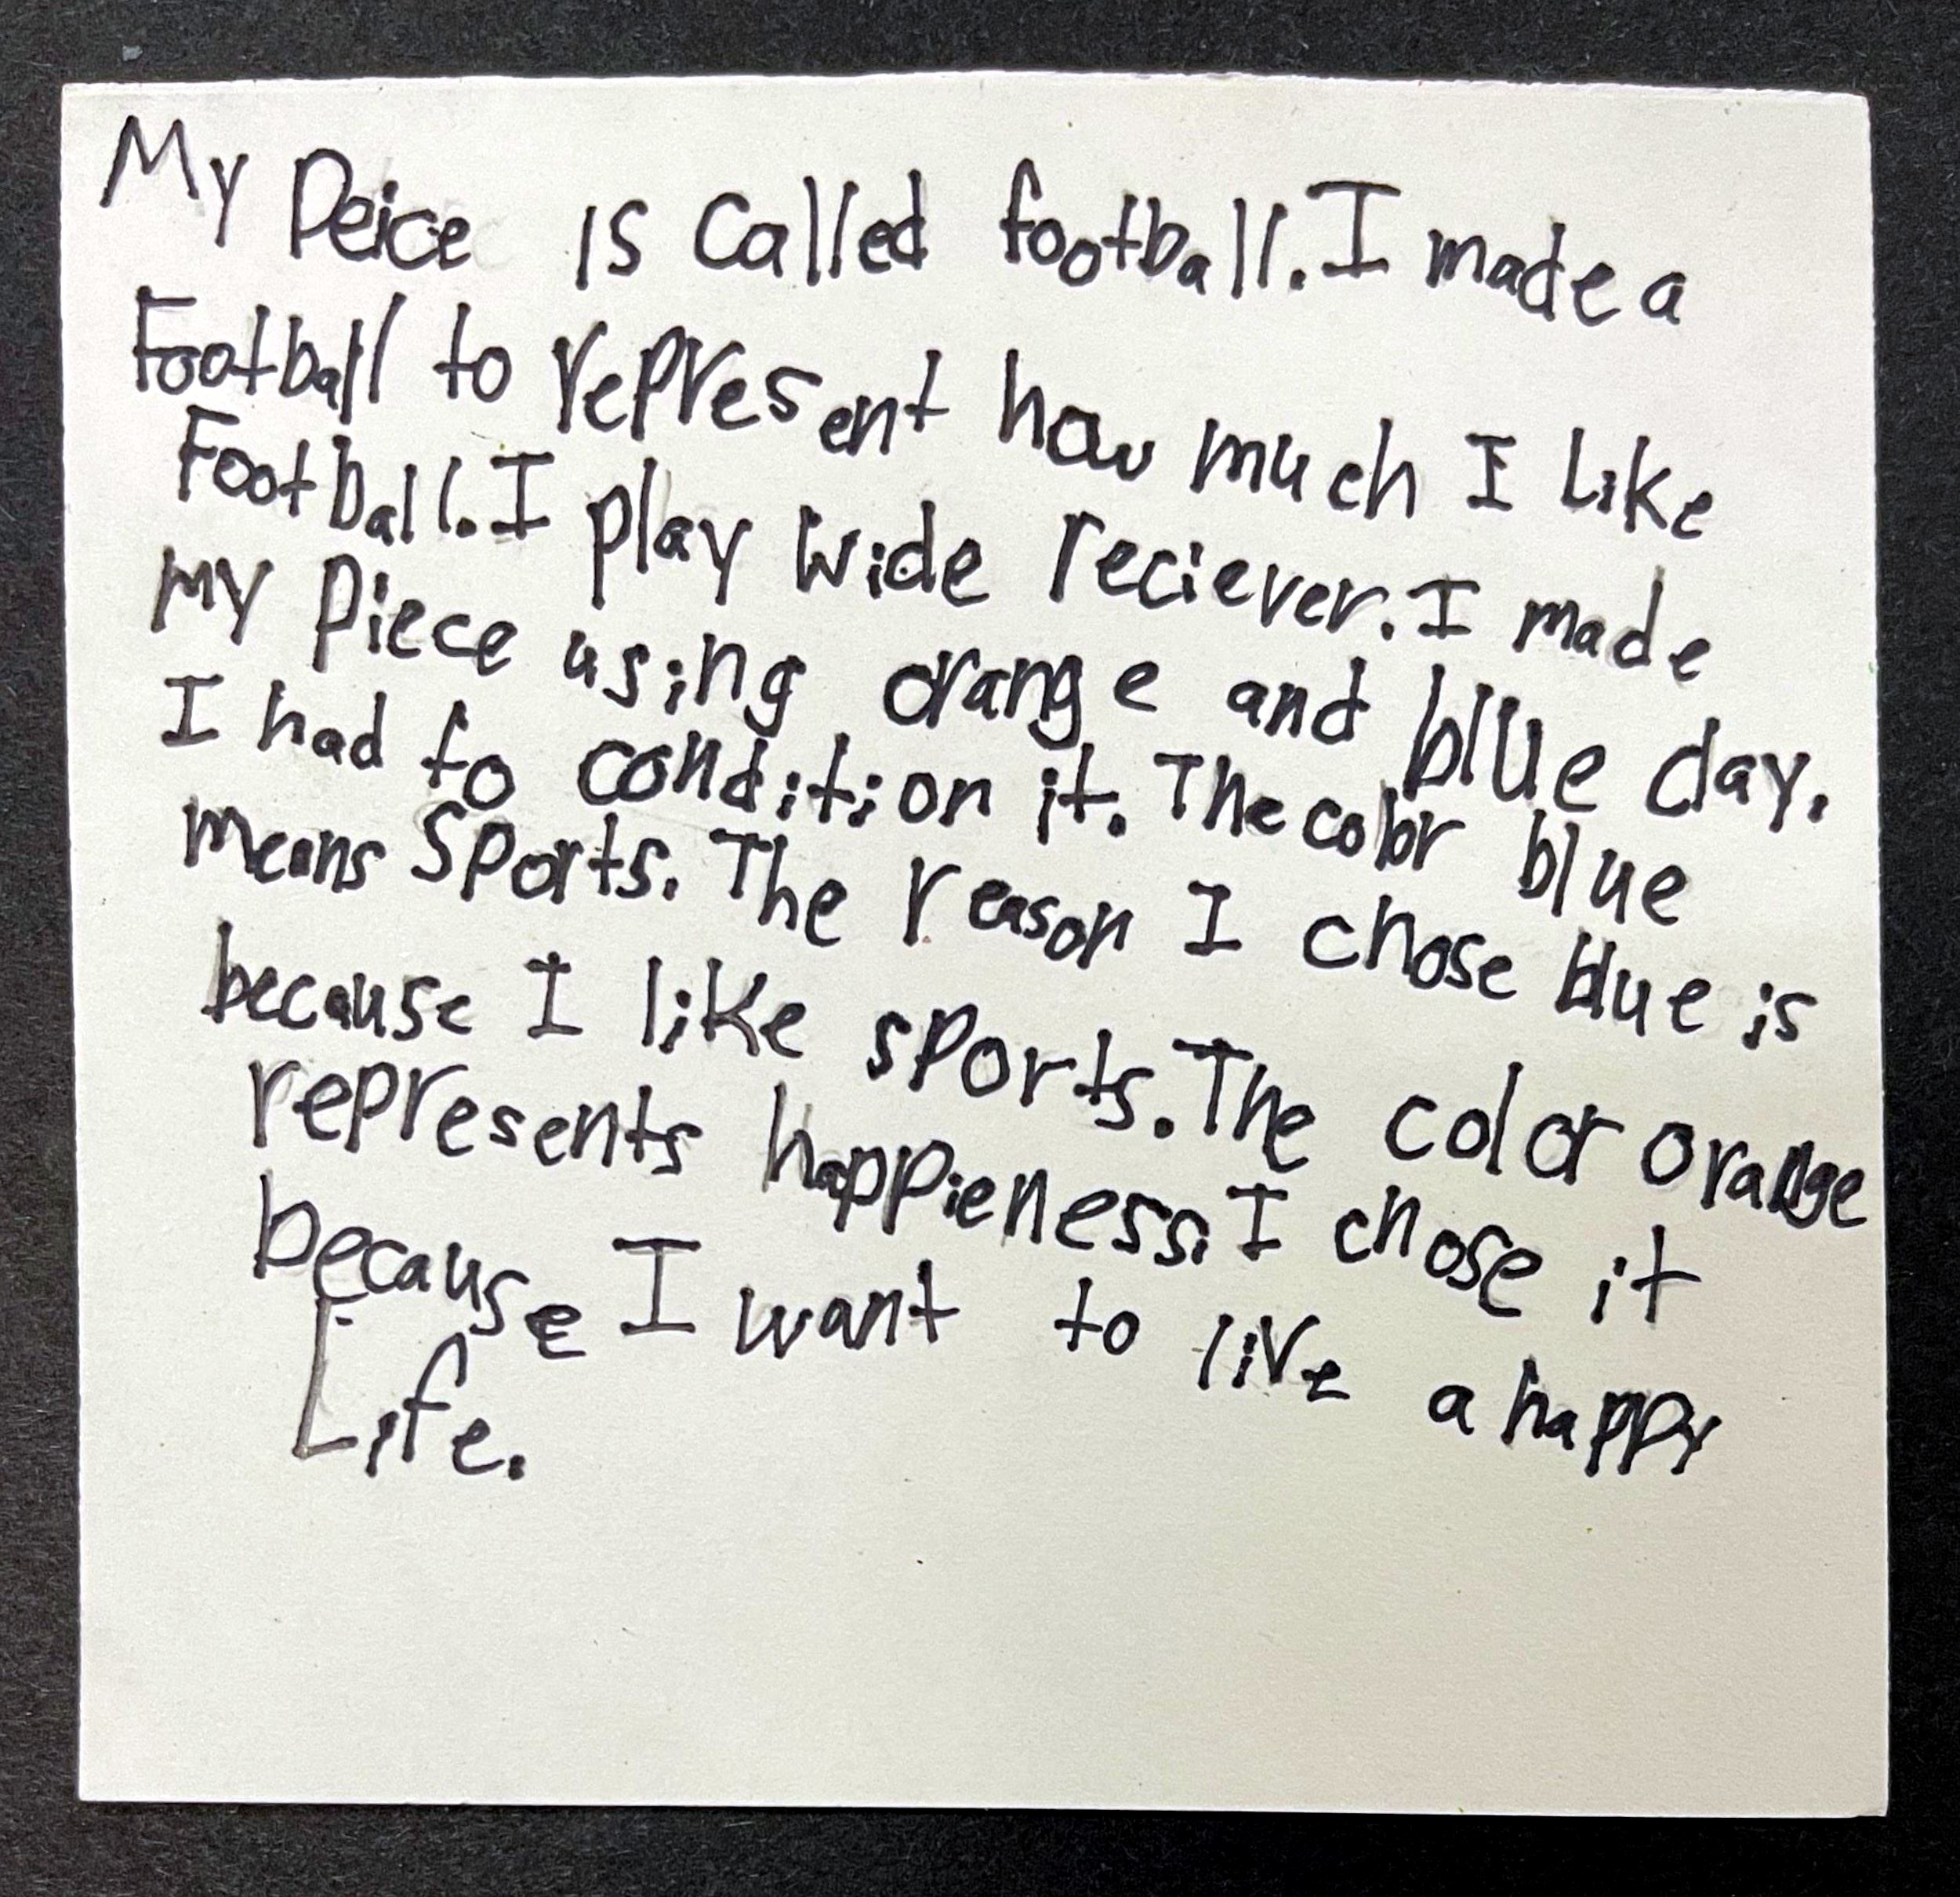 My Peice is called football. I made a
Football to represent how much I like
Football. I play wide reciever. I made
my piece using orange and blue clay.
I had to condition it. The color blue
means Sports. The reason I chose blue is
because I like sports. The color orange
represents happieness. I chose it
because I want to live a happy
Life.